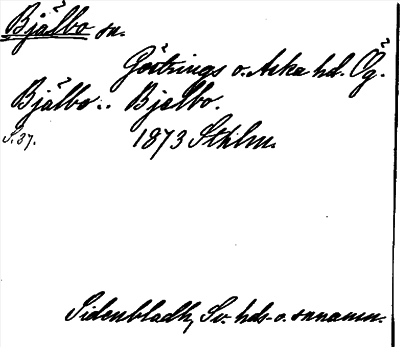 Bjälbo sn.
Göstrings o. Aska hd. Ög.
Bjälbo.. Bjelbo.
S. 37. 1873 Sthlm.
Sidenbladh, Sv. hds- o. snnamn.